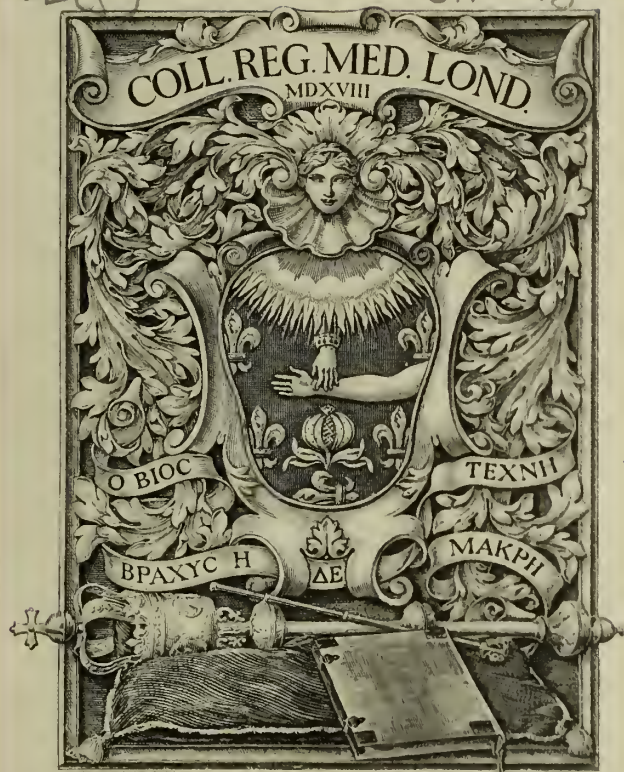 COLL. REG. MED. LOND.
MDXVIII
Ο ΒΙΟC
ΒΡΑΧΥC Η
ΔΕ
ΤΕΧΝΗ
ΜΑΚΡΗ